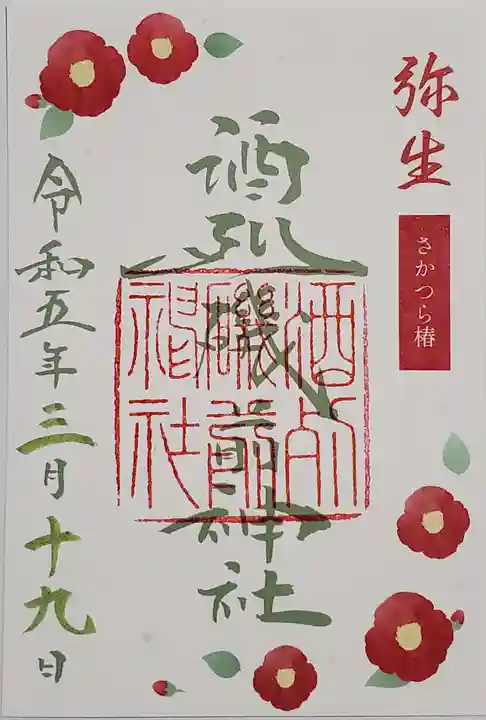 弥生
さかつら椿
酒列磯前神社
酒列
磯前
神社
令和五年三月十九日